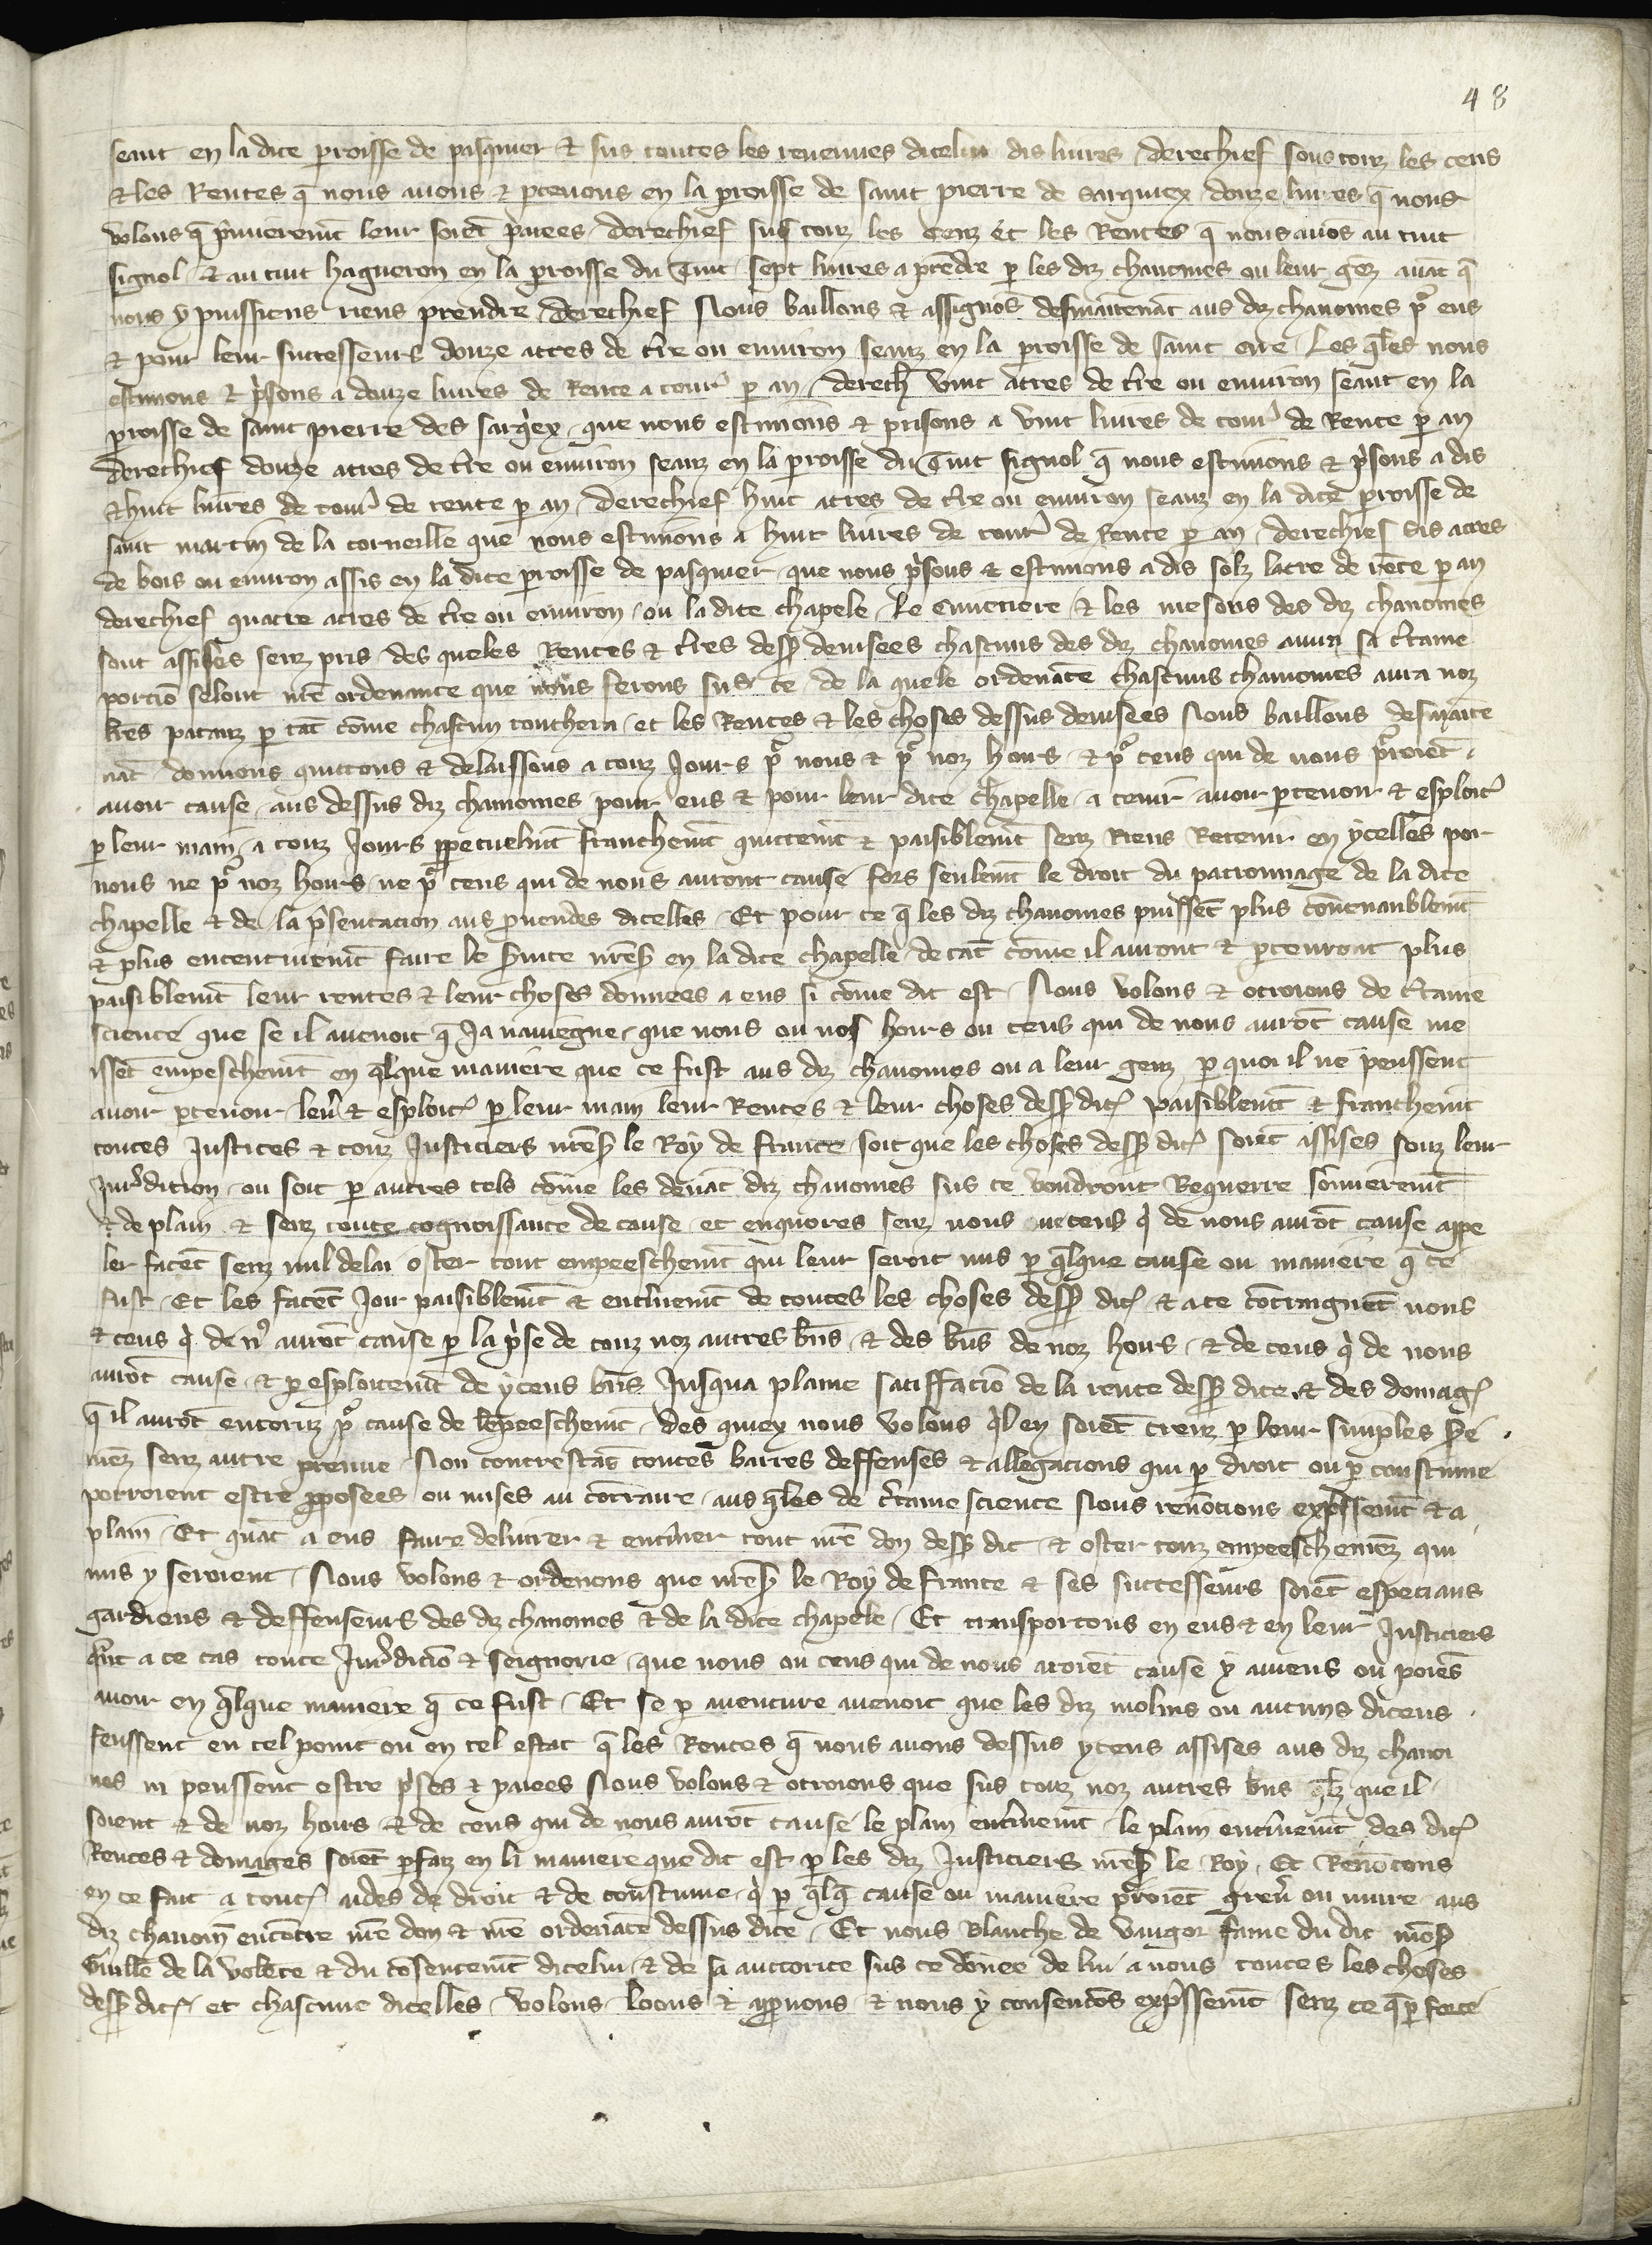 48
seant en la dite p̱roisse de pasquier & sus toutes les revenues dicelui dis livres / derechief sous touz les cens
& les Rentes q̄ nous avons & p̱cevons en la p̱roisse de saint pierre de Sarquiex / douze livres q̄ nous
volons q̄ p̱mierem̄t leur soiēt paiees / derechief sus touz les Cenz et les Rentes q̄ nous avōs au tuit
signol / & au tuit hagueron en la p̱roisse du Tuit / sept livres a p̄rēdre p̱ les diz chanoines ou leur gēz avāt q̄
nous y puissiens riens prendre / derechief Nous baillons & assignōs desmaītenāt aus diz chanoines p̄ eus
& pour leur successeurs douze acres de t̄re ou environ seanz en la p̱roisse de saint oue / Les q̄les nous
estimons & p̄sons a douze livres de Rente a tour̄ p̱ an / derech̄ vint acres de t̄re ou environ seant en la
p̱roisse de saint pierre des sarq̄ex / que nous estimons & prisons a vint livres de tour̄ de Rente p̱ an
derechief douze acres de t̄re ou environ seanz en la p̱roisse du Tuit signol q̄ nous estimons & p̄sons a dis
& huit livres de tour̄ de rente p̱ an / derechief huit acres de t̄re ou environ seanz en la dite p̱roisse de
saint martin de la corneille que nous estimons a huit livres de tour̄ de Rente p̱ an / derechief dis acres
de bois ou environ assis en la dite p̱roisse de pasquier / que nous p̄sons & estimons a dis solz lacre de rēte p̱ an
derechief quatre acres de t̄re ou environ / ou la dite chapele / le cimetiere & les mesons des diz chanoines
sont assises senz pris / des queles Rentes & t̄res dess̄ devisees chascuns des diz chanoines avra sa c̄taine
portiō selont n̄re ordenance que nous ferons sus ce / de la quele ordenāce chascuns chanoines aura noz
l̄res patanz p̱ tāt cōme chascun touchera / et les Rentes & les choses dessus devisees Nous baillons desmaīte
nāt donnons quittons & delaissons a touz Jours p̄ nous & p̄ noz hoirs / & p̄ ceus qui de nous p̄roiēt
avoir cause / aus dessus diz chanoines pour eus & pour leur dite chapelle / a tenir avoir p̱cevoir & esploit̄
p̱ leur main / a touz Jours p̱petuelm̄t franchem̄t quittem̄t & paisiblem̄t senz Riens Retenir en ycelles por
nous ne p̄ noz hoirs / ne p̄ ceus qui de nous auront cause / fors seulem̄t le droit du patronnage de la dite
chapelle & de la p̄sentacion aus p̱vendes dicelles / Et pour ce q̄ les diz chanoines puissēt plus cōvenaublem̄t
& plus ententivem̄t faire le s̄vice n̄res̄ en la dite chapelle / de tāt cōme il auront & p̱cevront plus
paisiblem̄t leur rentes & leur choses donnees a eus si cōme dit est / Nous volons & otroions de c̄taine
science que se il avenoit q̄ Ja navīegne / que nous ou nos hoirs ou ceus qui de nous aurōt cause me
issēt empeschem̄t en q̄lque maniere que ce fust aus diz chanoines ou a leur genz / p̱ quoi il ne peussent
avoir p̱cevoir / lev̄ & esploit̄ p̱ leur main leur Rentes & leur choses dess̄ dit̄ paisiblem̄t & franchem̄t
toutes Justices & touz Justiciers n̄res̄ le Roy de france / soit que les choses dess̄ dit̄ soiēt assises souz leur
Jur̄dition / ou soit p̱ autres tels cōme les devāt diz chanoines sus ce voudront Requerre sōmierem̄t
& de plain & senz toute cognoissance de cause / et enquores senz nous / ne ceus q̄ de nous aurōt cause appe
ler facēt senz nul delai oster tout empeeschem̄t qui leur seroit mis p̱ q̄lque cause ou maniere q̄ ce
fust / Et les facēt Joir paisiblem̄t & entierem̄t de toutes les choses dess̄ dit̄ & a ce cōtraignēt nous
& ceus q̄ de n̄ aurōt cause p̱ la p̄se de touz noz autres b̄ns / & des b̄ns de noz hoirs / & de ceus q̄ de nous
aurōt cause / & p̱ esploitem̄t de yceus b̄ns Jusqua plaine satiffaciō de la rente dess̄ dite & des domaḡ
q̄ il aurōt encoruz p̄ cause de lēpeeschem̄t / des quiex nous volons q̄l en soiēt creuz p̱ leur simples sere
mēz senz autre preuve / Non contrestāt toutes barres deffenses & allegacions qui p̱ droit ou p̱ coustume
porroient estre p̱posees ou mises au cōtraire / aus q̄les de c̄taine science Nous renōcions exp̄ssem̄t & a
plain / Et quāt a eus faire delivrer & entiner tout n̄re don dess̄ dit / & oster touz empeeschemēz qui
mis y seroient / Nous volons & ordenons que n̄res̄ le Roy de france & ses successeurs soiēt especiaus
gardiens & deffenseurs des diz chanoines & de la dite chapele / Et transportons en eus & en leur Justiciers
quāt a ce cas toute Jur̄diciō & seignorie / que nous ou ceus qui de nous aroiēt cause y aviens ou poiēs
avoir en q̄lque maniere q̄ ce fust / Et se p̱ aventure avenoit que les diz molins ou aucuns diceus
feussent en tel point ou en tel estat q̄ les Rentes q̄ nous avons dessus yceus assises aus diz chanoi
nes ni peussent estre p̄ses & paiees Nous volons & otroions que sus touz noz autres b̄ns q̄lz que il
soient & de noz hoirs & de ceus qui de nous aurōt cause / le plain entierem̄t / le plain entierem̄t des dit̄
Rentes & domages soiēt p̱faiz en la maniere que dit est p̱ les diz Justiciers n̄res̄ le Roy / Et Renōcons
en ce fait a tout̄ aides de droit & de coustume / q̄ p̱ q̄lq̄ cause ou maniere p̄roiēt grev̄ ou nuire aus
diz chanoin̄ encōtre n̄re don & n̄re ordenāce dessus dite / Et nous Blanche de vaugor fame du dit mōs̄
Guill̄e de la volēte & du cōsentem̄t dicelui / & de sa auctorite sus ce dōnee de lui a nous toutes les choses
dess̄ dit̄ / et chascune dicelles / volons / loons & app̱vons / & nous y consentōs exp̄ssem̄t senz ce q̄ p̱ force